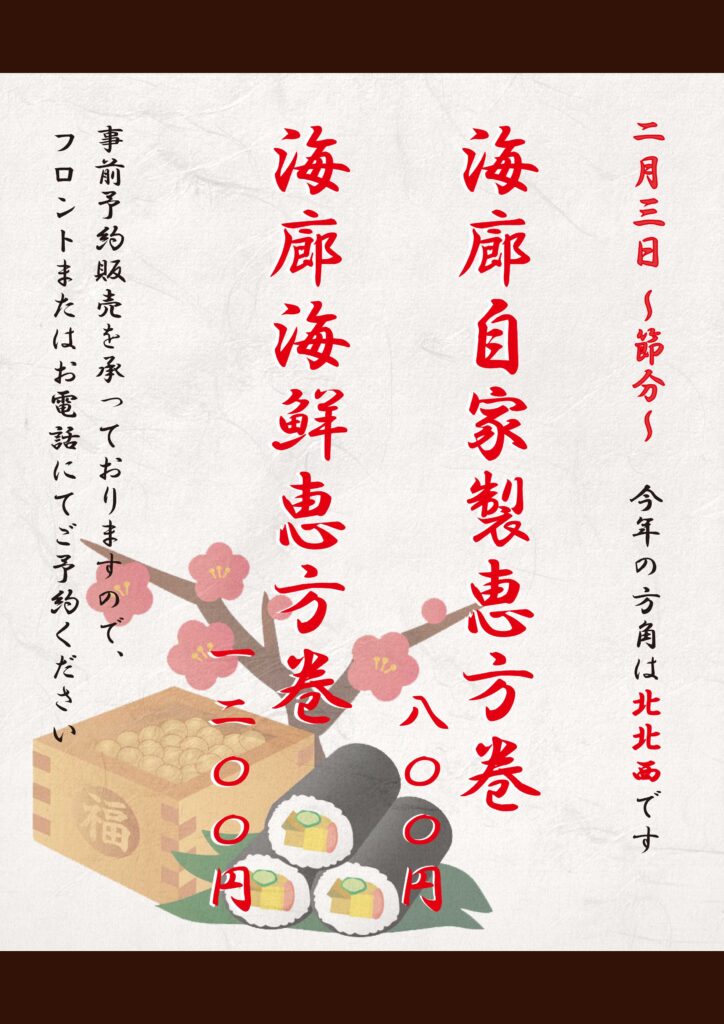 二月三日 ~節分~ 今年の方角は北北西です
海廊自家製恵方巻
八〇〇円
海廊海鮮恵方巻
一二〇〇円
事前予約販売を承っておりますので、
フロントまたはお電話にてご予約ください
福